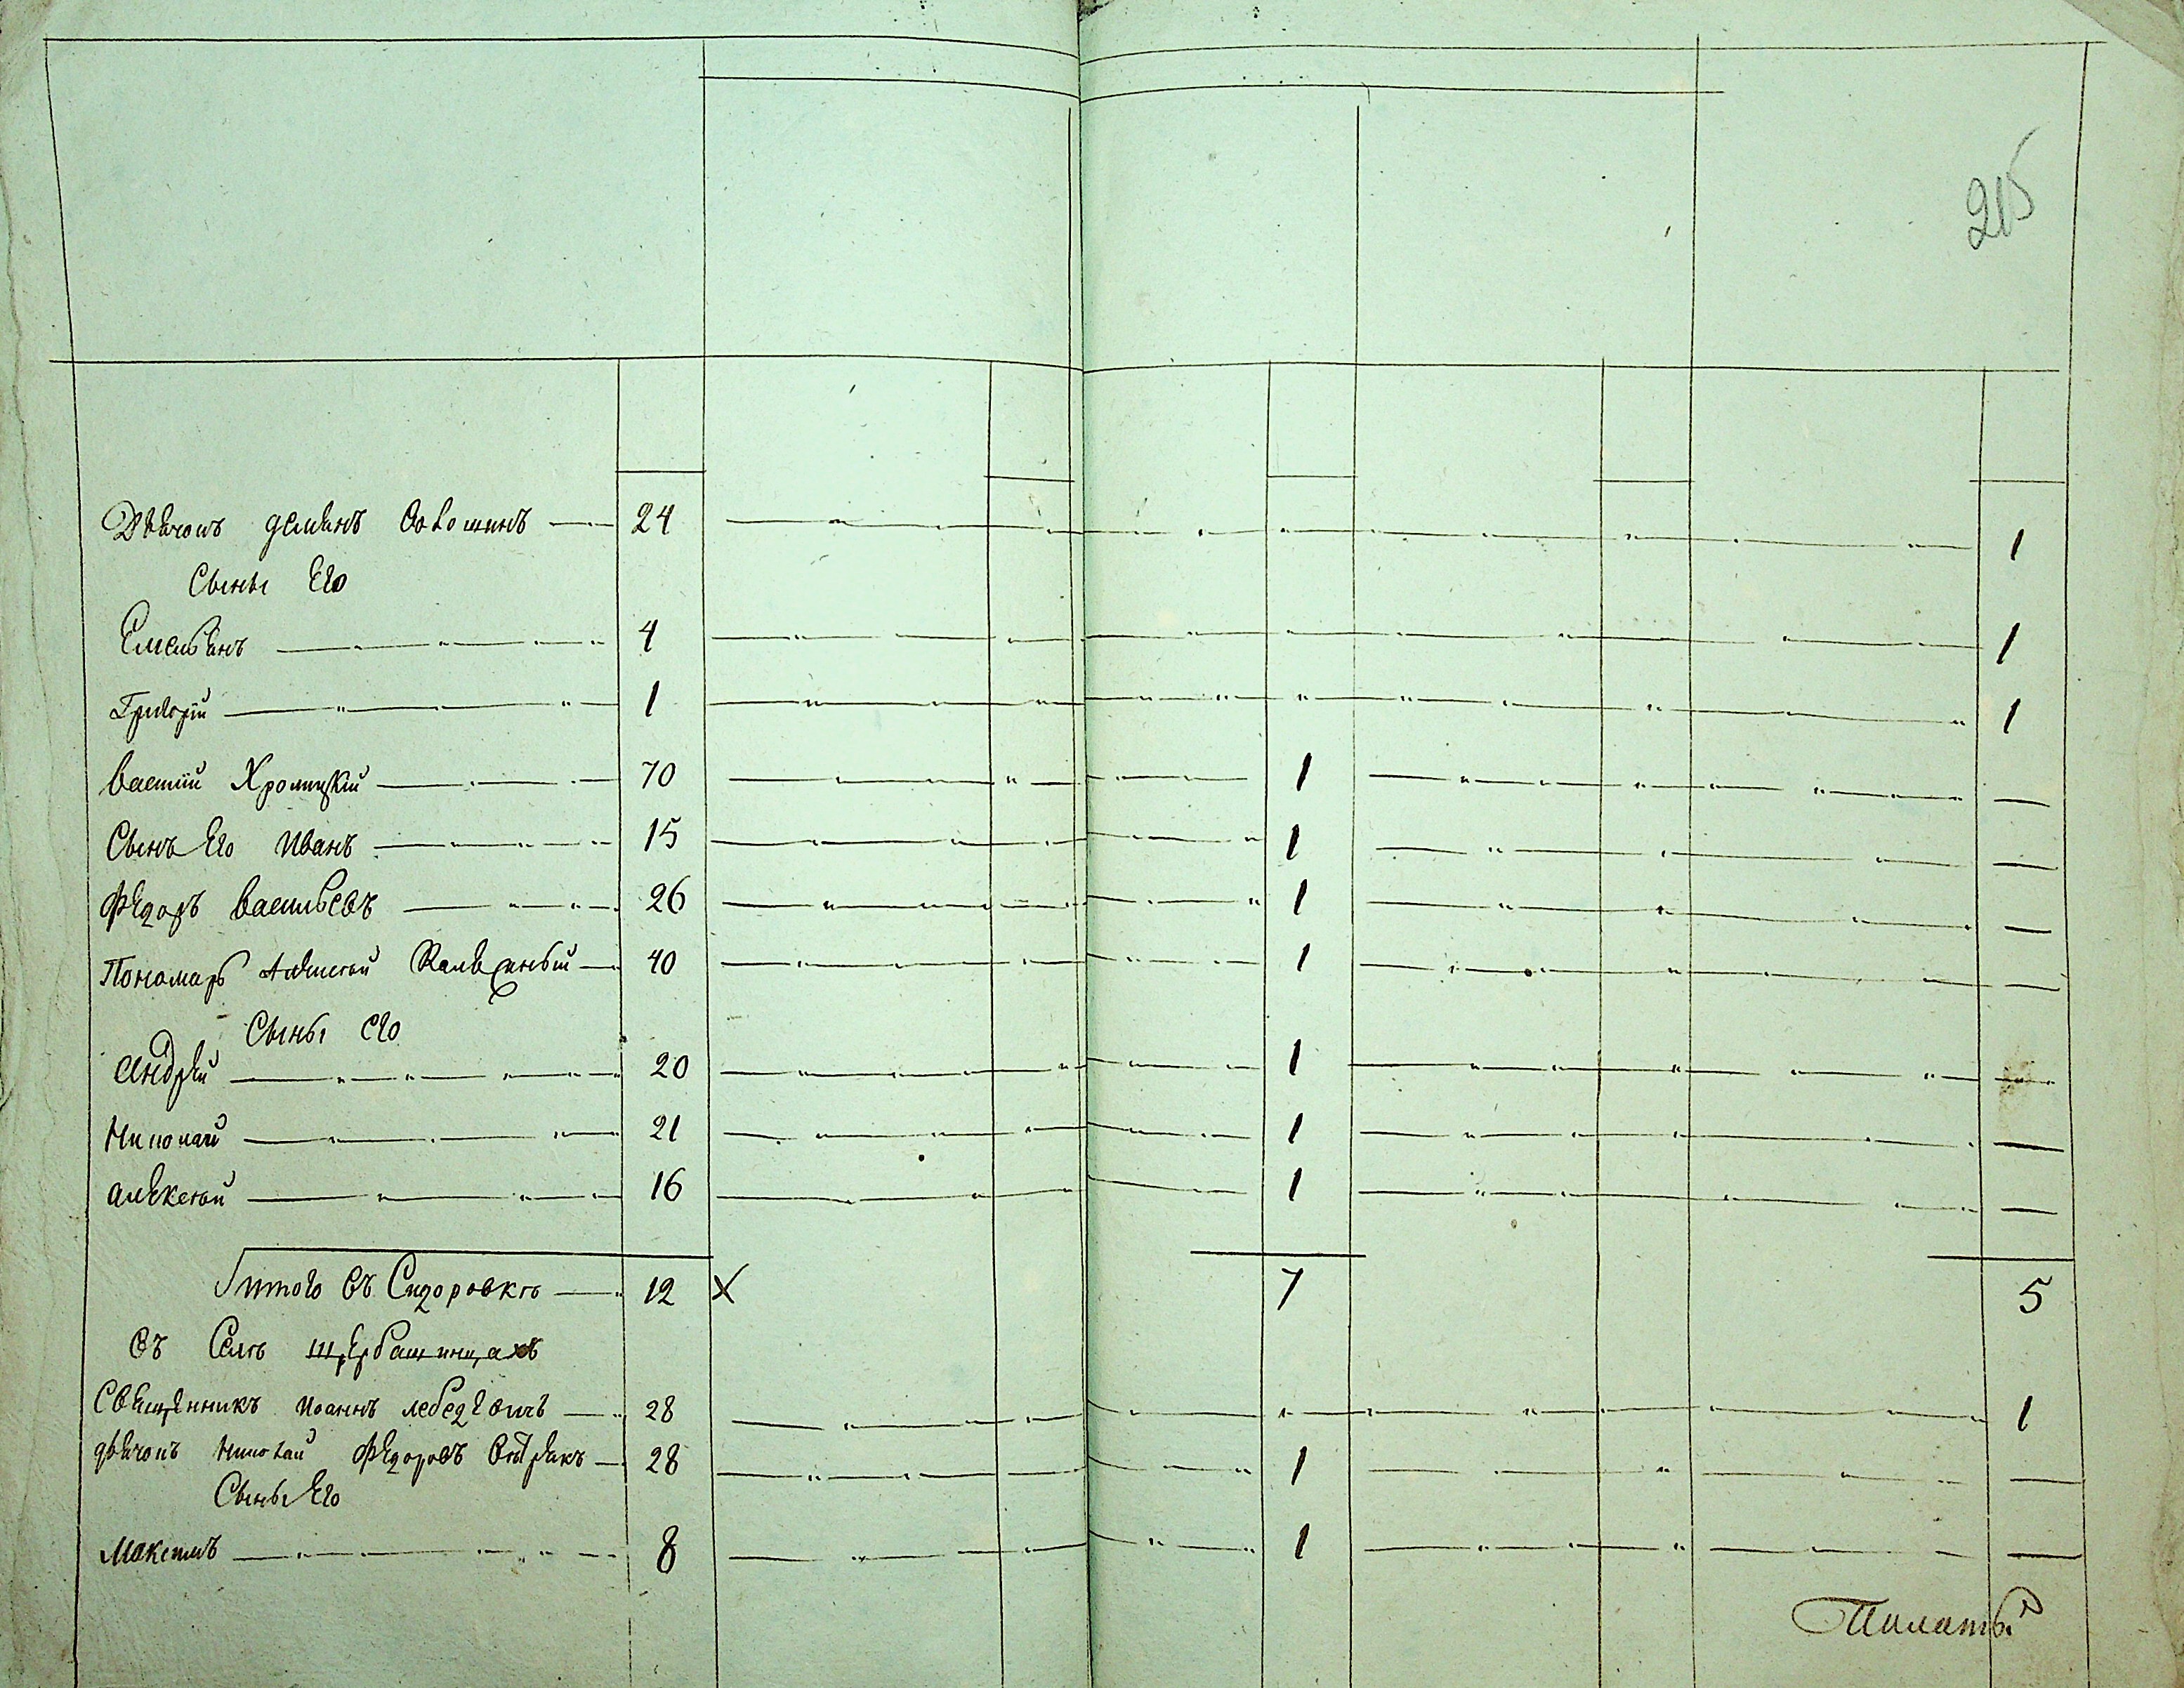 215
Дьячокъ Демьянъ 24 1
Сыны Его
Емельянъ 4 1
Григорій 1 1
Василій Хромицкій 70 1
Сынъ Его Иванъ 15 1
Федоръ Васильевъ 26 1
Пономарь Алексей 40 1
Сыны его
Андрей 20 1
Николай 21 1
Алексей 16 1
Итого въ Сидоровке 12 7 5
въ Селе Щербашинцахъ
Священникъ Иоаннъ Лебедевичъ 28 1
Дьячокъ Николай Федоровъ 28 1
Сыны Его
Максимъ 8 1